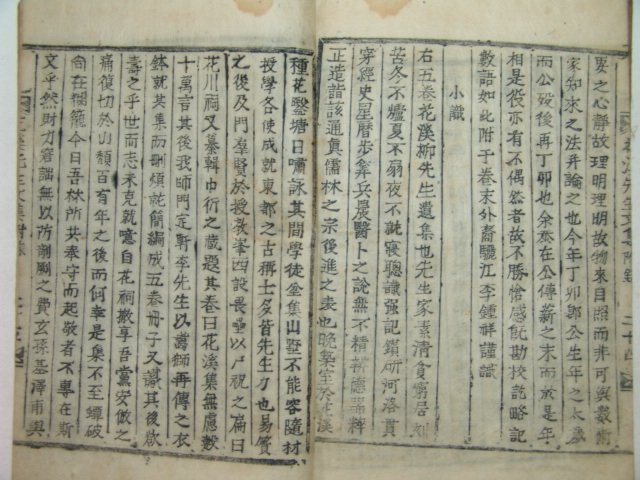 要之心靜故理明理明故物來自照而非可與數術
家知來之法并論之也今年丁卯卽公生年之太歲
而公歿後再丁卯也余忝在公傳薪之末而於是年
相是役亦有不偶然者故不勝愴感旣勘校訖略記
數語如此附于卷末外裔驪江李鍾祥謹識
小識
右五卷花溪柳先生遺集也先生家素清貧窮居刻
苦冬不爐夏不扇夜不就寢聰識强記鑽硏河洛貫
穿經史星曆步筭兵農醫卜之說無不精辨德器粹
正造詣該通眞儒林之宗後進之表也晩築室於花溪
種花鑿塘日嘯詠其間學徒坌集山墅不能容隨材
授學各使成就東都之古稱士多皆先生力也易簀
之後及門羣賢於授敎峯四設畏壘以尸祝之扁曰
花川祠又纂輯巾衍之藏題其卷曰花溪集無慮數
十萬言其後我師門定軒李先生以嵩師再傳之衣
鉢就其集而刪煩就簡編成五卷冊子又識其後欲
壽之乎世而志未克就噫自花祠撤享吾黨安倣之
痛復切於山頹百有年之後而何幸是集不至蟫破
尙在襴籠今日吾林所共奉守而起敬者不專在斯
文乎然財力窘詘無以防剞劂之費玄孫基澤甫與